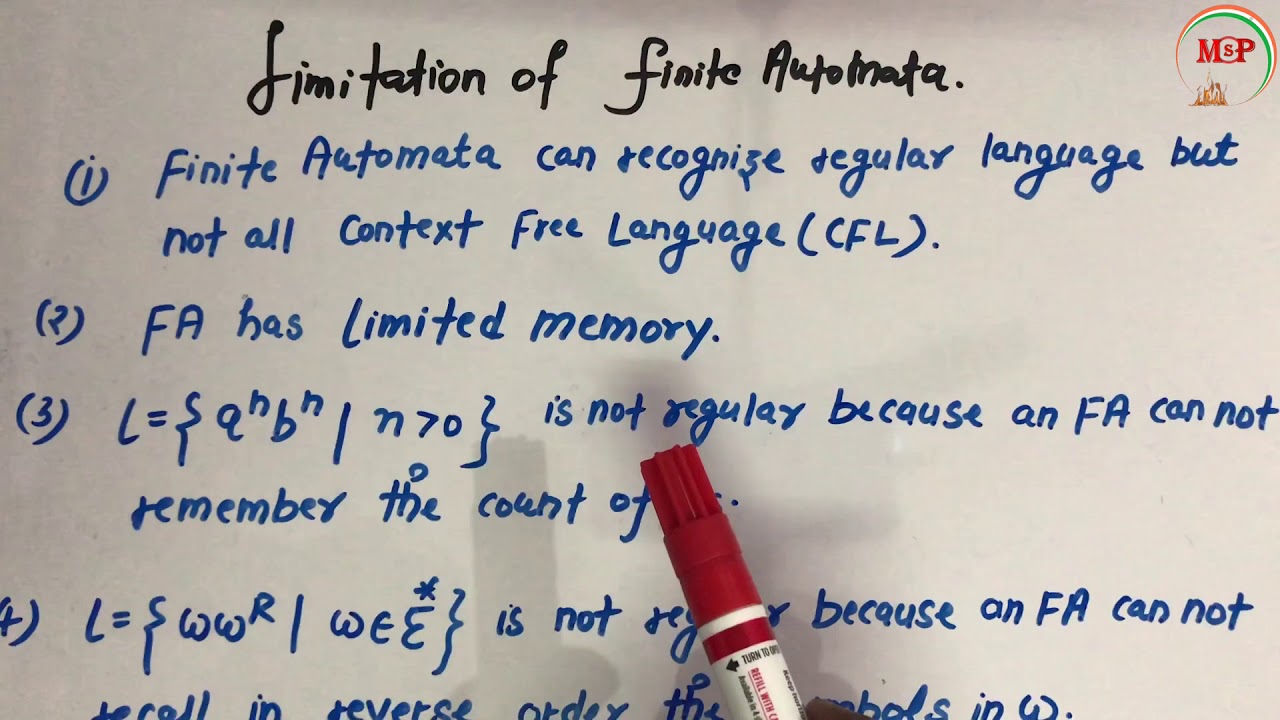 MSP
Limitation of Finite Automata.
(i) Finite Automata can recognize regular language but
not all Context Free Language (CFL).
(2) FA has limited memory.
(3) L = { aⁿbⁿ | n > 0 } is not regular because an FA can not
remember the count of
4) L = { ωωᴿ | ω ∈ Σ* } is not because an FA can not
recall in reverse order the in ω.
TURN TO
REFILL WITH